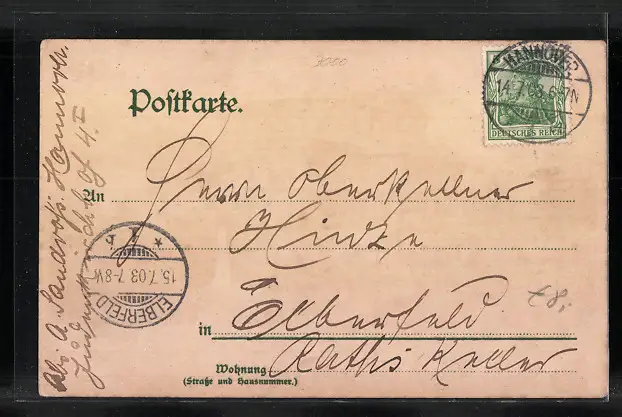 3000
Postkarte.
HANNOVER
14.7.03.6-7N
DEUTSCHES REICH
An Herrn Oberkellner
Hinze
in Elberfeld
Wohnung Raths Keller
(Straße und Hausnummer.)
ELBERFELD
15.7.03.7-8V.
b
Abs. A. Hannover.
4. I